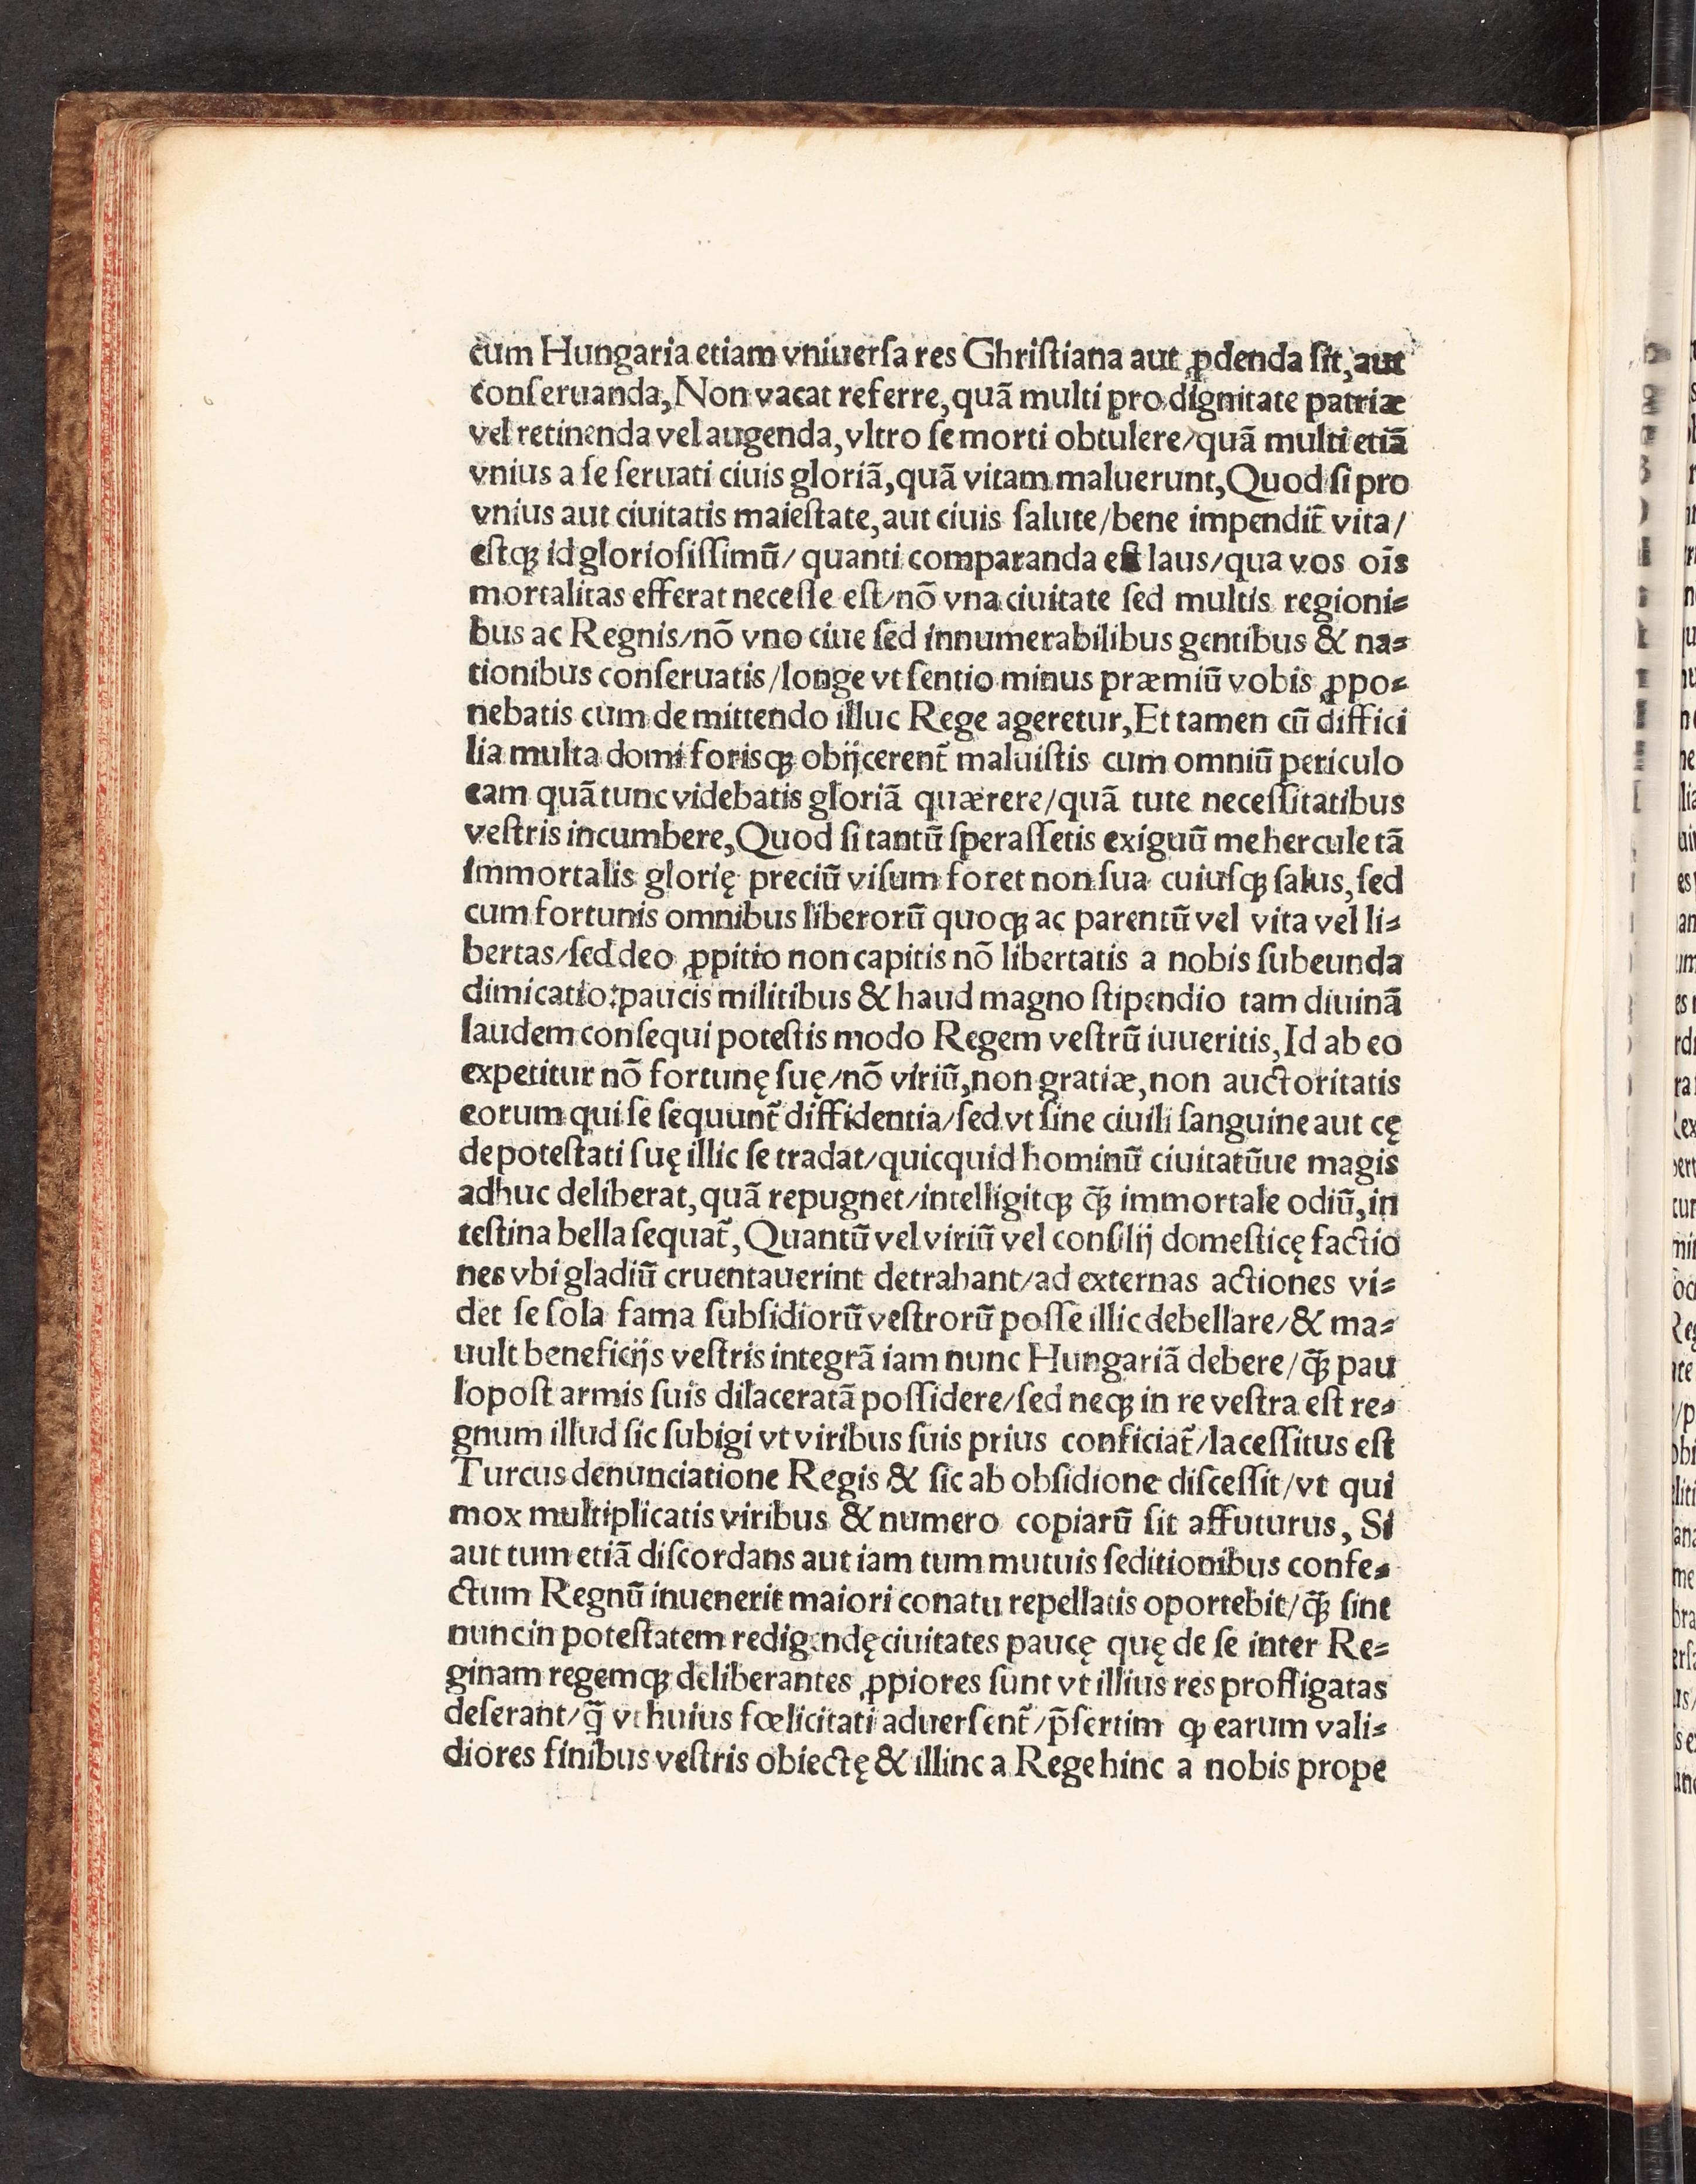 cum Hungaria etiam vniuerſa res Ghriſtiana aut ꝓdenda ſit, aut
conſeruanda, Non vacat referre, quā multi pro dignitate patriæ
vel retinenda vel augenda, vltro ſe morti obtulere/quā multi etiā
vnius a ſe ſeruati ciuis gloriā, quā vitam maluerunt, Quod ſi pro
vnius aut ciuitatis maieſtate, aut ciuis ſalute/bene impendit̃ vita/
eſtqꝫ id glorioſiſſimū/ quanti comparanda eſt laus/qua vos oīs
mortalitas efferat neceſſe eſt/nō vna ciuitate ſed multis regioni⸗
bus ac Regnis/nō vno ciue ſed innumerabilibus gentibus & na⸗
tionibus conſeruatis/longe vt ſentio minus præmiū vobis ꝓpo⸗
nebatis cum de mittendo illuc Rege ageretur, Et tamen cū diffici
lia multa domi foriſqꝫ obijcerent̃ maluiſtis cum omniū periculo
eam quā tunc videbatis gloriā quærere/quā tute neceſſitatibus
veſtris incumbere, Quod ſi tantū ſperaſſetis exiguū me hercule tā
immortalis glorię preciū viſum foret non ſua cuiuſqꝫ ſalus, ſed
cum fortunis omnibus liberorū quoqꝫ ac parentū vel vita vel li⸗
bertas/ſed deo ꝓpitio non capitis nō libertatis a nobis ſubeunda
dimicatio: paucis militibus & haud magno ſtipendio tam diuinā
laudem conſequi poteſtis modo Regem veſtrū iuueritis, Id ab eo
expetitur nō fortunę ſuę/nō viriū, non gratiæ, non auctoritatis
eorum qui ſe ſequunt̃ diffidentia/ſed vt ſine ciuili ſanguine aut cę
de poteſtati ſuę illic ſe tradat/quicquid hominū ciuitatūue magis
adhuc deliberat, quā repugnet/intelligitqꝫ q̄ꝫ immortale odiū, in
teſtina bella ſequat̃, Quantū vel viriū vel conſilij domeſticę factio
nes vbi gladiū cruentauerint detrahant/ad externas actiones vi⸗
det ſe ſola fama ſubſidiorū veſtrorū poſſe illic debellare/& ma⸗
uult beneficijs veſtris integrā iam nunc Hungariā debere/q̄ꝫ pau
lopoſt armis ſuis dilaceratā poſſidere/ſed neqꝫ in re veſtra eſt re⸗
gnum illud ſic ſubigi vt viribus ſuis prius conficiat̃/laceſſitus eſt
Turcus denunciatione Regis & ſic ab obſidione diſceſſit/vt qui
mox multiplicatis viribus & numero copiarū ſit affuturus, Si
aut tum etiā diſcordans aut iam tum mutuis ſeditionibus confe⸗
ctum Regnū inuenerit maiori conatu repellatis oportebit/q̄ꝫ ſint
nunc in poteſtatem redigendę ciuitates paucę quę de ſe inter Re⸗
ginam regemqꝫ deliberantes ꝓpiores ſunt vt illius res profligatas
deſerant/q̄ vt huius fœlicitati aduerſent̃/p̄ſertim ꝙ earum vali⸗
diores finibus veſtris obiectę & illinc a Rege hinc a nobis prope